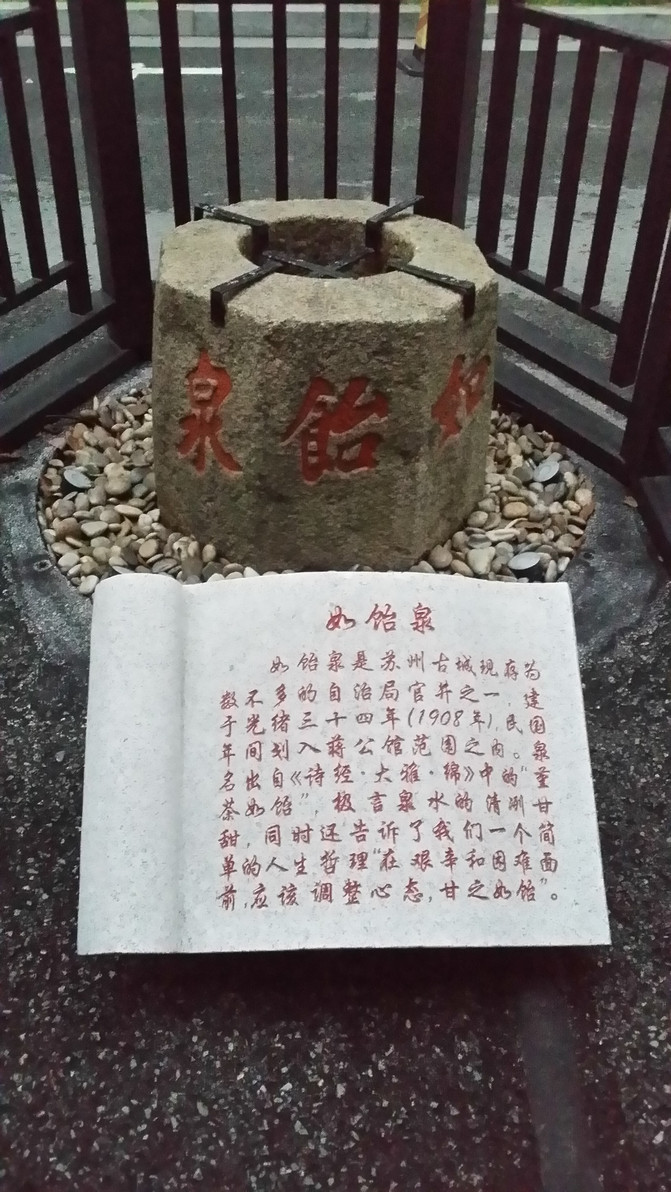 如飴泉
如飴泉
如飴泉是苏州古城现存为
数不多的自治局官井之一，建
于光绪三十四年(1908年)，民国
年间划入蒋公馆范围之内。泉
名出自《诗经·大雅·绵》中的“堇
荼如飴”，极言泉水的清冽甘
甜，同时还告诉了我们一个简
单的人生哲理“在艰辛和困难面
前，应该调整心态，甘之如飴”。